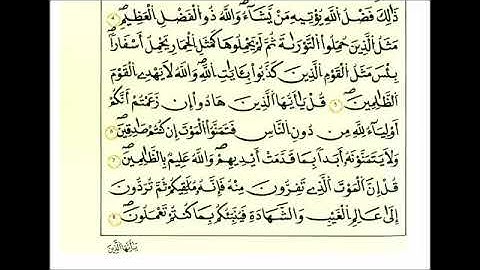 ذَٰلِكَ فَضْلُ اللَّهِ يُؤْتِيهِ مَن يَشَاءُ وَاللَّهُ ذُو الْفَضْلِ الْعَظِيمِ ٤
مَثَلُ الَّذِينَ حُمِّلُوا التَّوْرَىٰةَ ثُمَّ لَمْ يَحْمِلُوهَا كَمَثَلِ الْحِمَارِ يَحْمِلُ أَسْفَارًا
بِئْسَ مَثَلُ الْقَوْمِ الَّذِينَ كَذَّبُوا بِـَٔايَاتِ اللَّهِ وَاللَّهُ لَا يَهْدِي الْقَوْمَ
الظَّالِمِينَ ٥ قُلْ يَا أَيُّهَا الَّذِينَ هَادُوا إِن زَعَمْتُمْ أَنَّكُمْ
أَوْلِيَاءُ لِلَّهِ مِن دُونِ النَّاسِ فَتَمَنَّوُا الْمَوْتَ إِن كُنتُمْ صَادِقِينَ ٦
وَلَا يَتَمَنَّوْنَهُ أَبَدًا بِمَا قَدَّمَتْ أَيْدِيهِمْ وَاللَّهُ عَلِيمٌ بِالظَّالِمِينَ ٧
قُلْ إِنَّ الْمَوْتَ الَّذِي تَفِرُّونَ مِنْهُ فَإِنَّهُ مُلَاقِيكُمْ ثُمَّ تُرَدُّونَ
إِلَىٰ عَالِمِ الْغَيْبِ وَالشَّهَادَةِ فَيُنَبِّئُكُم بِمَا كُنتُمْ تَعْمَلُونَ ٨
يَا أَيُّهَا الَّذِينَ